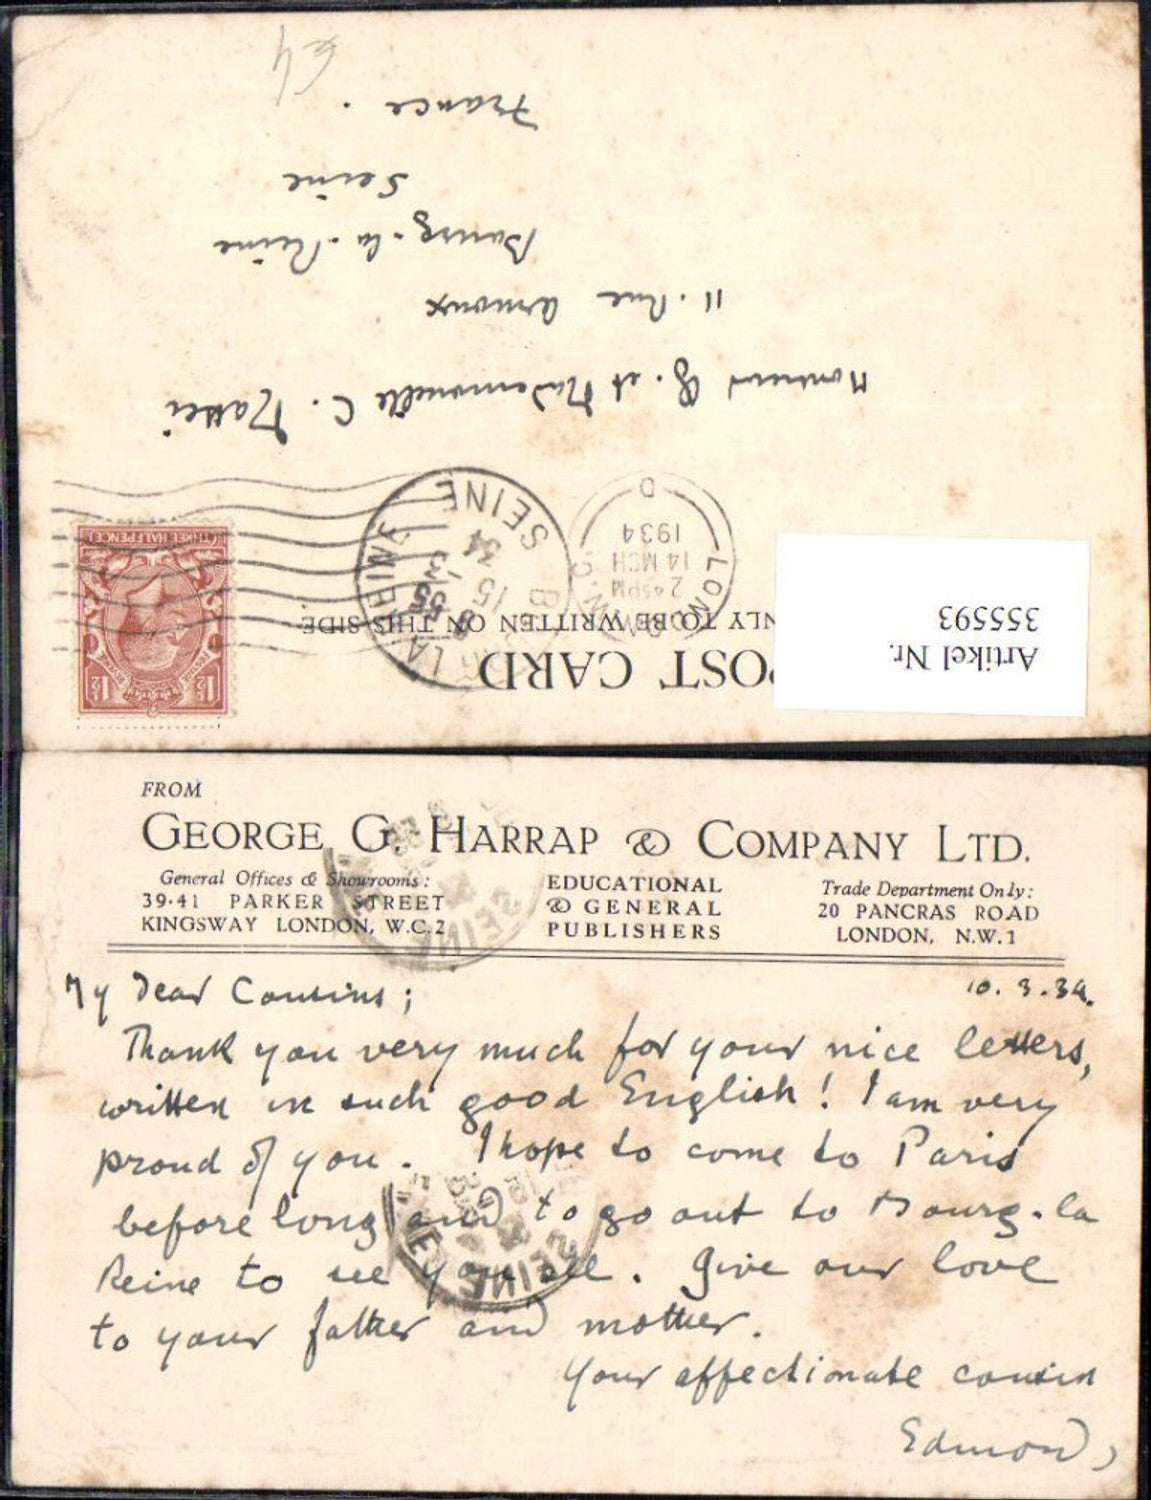 £4
POST CARD
ONLY TO BE WRITTEN ON THIS SIDE
Artikel Nr.
355593
1½
1½
THREE HALFPENCE
LONDON
2 45 PM
14 MCH
1934
D
LA REINE
B
15
34
SEINE
et Mademoiselle C. Mattei
11. Rue
Bourg-la-Reine
Seine
France.
FROM
GEORGE G. HARRAP & COMPANY LTD.
General Offices & Showrooms:
39-41 PARKER STREET
KINGSWAY LONDON, W.C.2
EDUCATIONAL
& GENERAL
PUBLISHERS
Trade Department Only:
20 PANCRAS ROAD
LONDON, N.W.1
10. 3. 34.
My Dear Cousins;
Thank you very much for your nice letters,
written in such good English! I am very
proud of you. I hope to come to Paris
before long and to go out to Bourg-la
Reine to see you all. Give our love
to your father and mother.
Your affectionate cousin
Edmond